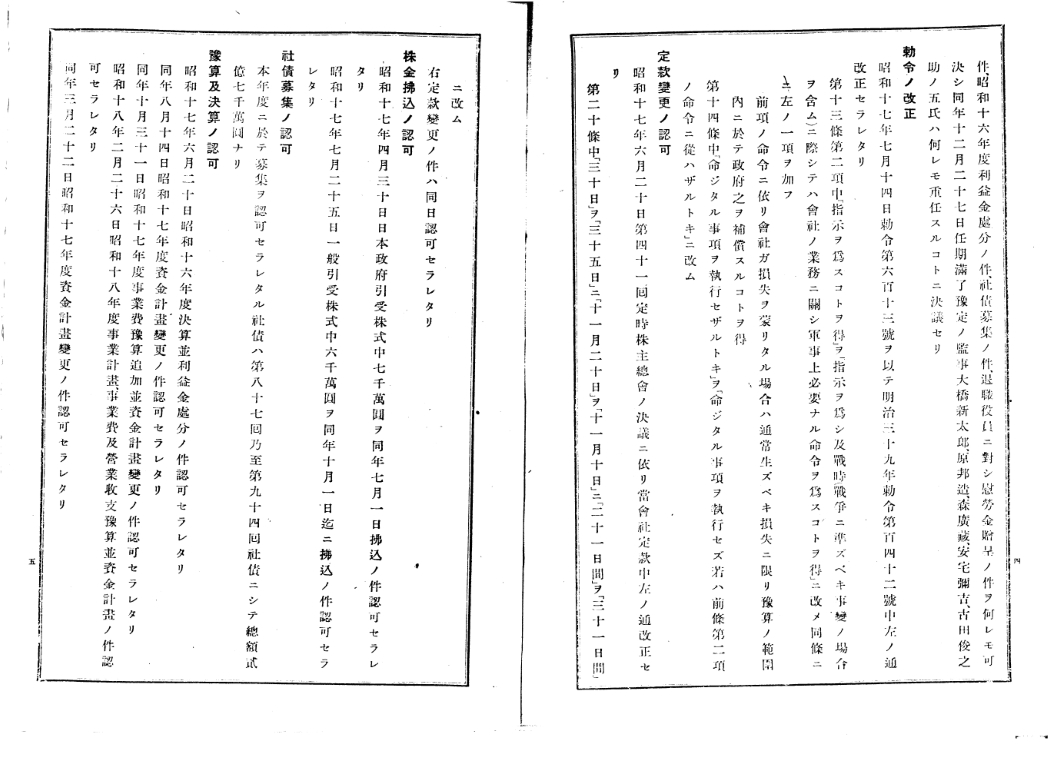 件、昭和十六年度利益金處分ノ件、社債募集ノ件、退職役員ニ對シ慰勞金贈呈ノ件ヲ何レモ可
決シ同年十二月二十七日任期滿了豫定ノ監事大橋新太郎、原邦造、森廣藏、安宅彌吉、古田俊之
助ノ五氏ハ何レモ重任スルコトニ決議セリ
勅令ノ改正
昭和十七年七月十四日勅令第六百十三號ヲ以テ明治三十九年勅令第百四十二號中左ノ通
改正セラレタリ
第十三條第二項中「指示ヲ爲スコトヲ得」ヲ「指示ヲ爲シ及戰時(戰爭ニ準ズベキ事變ノ場合
ヲ含ム)ニ際シテハ會社ノ業務ニ關シ軍事上必要ナル命令ヲ爲スコトヲ得」ニ改メ同條ニ
左ノ一項ヲ加フ
前項ノ命令ニ依リ會社ガ損失ヲ蒙リタル場合ハ通常生ズベキ損失ニ限リ豫算ノ範圍
內ニ於テ政府之ヲ補償スルコトヲ得
第十四條中「命ジタル事項ヲ執行セザルトキ」ヲ「命ジタル事項ヲ執行セズ若ハ前條第二項
ノ命令ニ從ハザルトキ」ニ改ム
定款變更ノ認可
昭和十七年六月二十日第四十一回定時株主總會ノ決議ニ依リ當會社定款中左ノ通改正セ
リ
第二十條中「三十日」ヲ「三十五日」ニ「十一月二十日」ヲ「十一月十日」ニ「二十一日間」ヲ「三十一日間」
四
ニ改ム
右定款變更ノ件ハ同日認可セラレタリ
株金拂込ノ認可
昭和十七年四月三十日日本政府引受株式中七千萬圓ヲ同年七月一日拂込ノ件認可セラレ
タリ
昭和十七年七月二十五日一般引受株式中六千萬圓ヲ同年十月一日迄ニ拂込ノ件認可セラ
レタリ
社債募集ノ認可
本年度ニ於テ募集ヲ認可セラレタル社債ハ第八十七回乃至第九十四回社債ニシテ總額貳
億七千萬圓ナリ
豫算及決算ノ認可
昭和十七年六月二十日昭和十六年度決算並利益金處分ノ件認可セラレタリ
同年八月十四日昭和十七年度資金計畫變更ノ件認可セラレタリ
同年十月三十一日昭和十七年度事業費豫算追加並資金計畫變更ノ件認可セラレタリ
昭和十八年二月二十六日昭和十八年度事業計畫、事業費及營業收支豫算並資金計畫ノ件認
可セラレタリ
同年三月二十二日昭和十七年度資金計畫變更ノ件認可セラレタリ
五